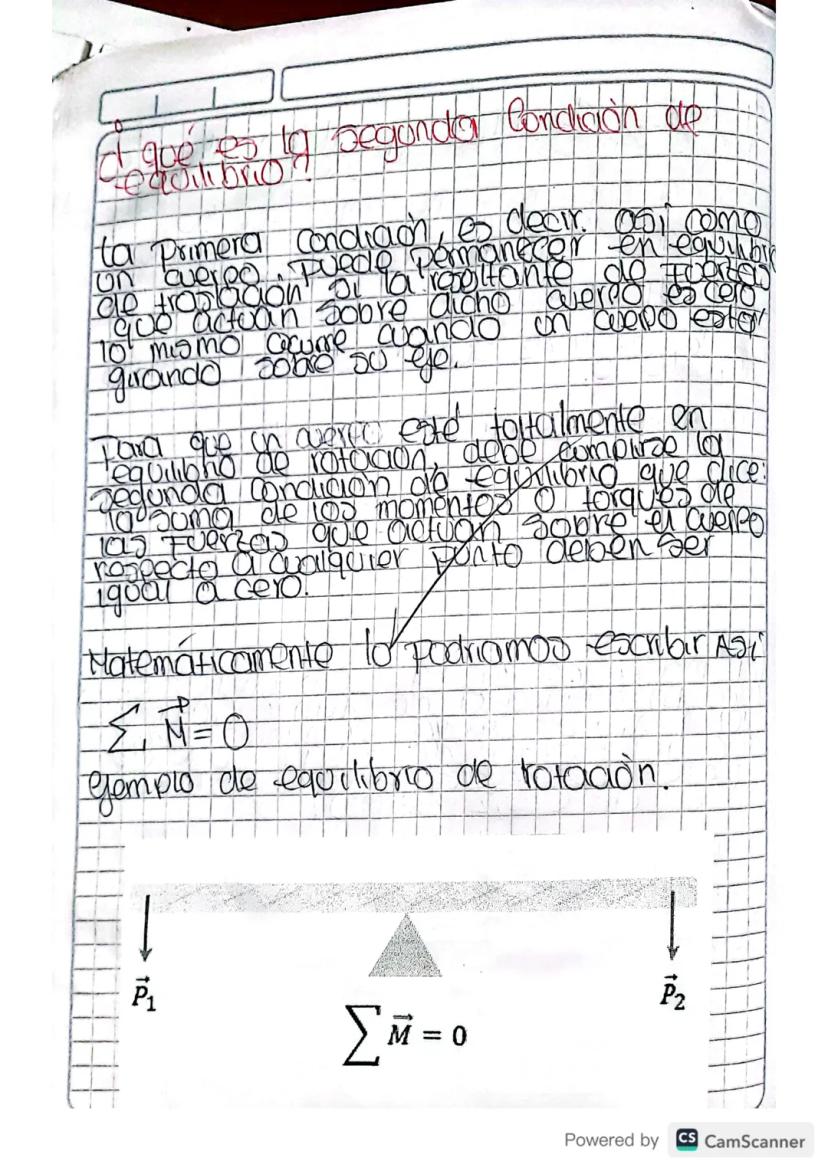 ¿qué es la segunda Condición de
equilibrio?
La primera condición, es decir. así como
un cuerpo, puede permanecer en equilibrio
de traslación si la resultante de fuerzas
que actúan sobre dicho cuerpo es cero
lo mismo ocurre cuando un cuerpo está
girando sobre su eje.
Para que un cuerpo esté toltalmente en
equilibrio de rotación debe cumplirse la
segunda condición de equilibrio que dice:
la soma de los momentos o torques de
las fuerzas que actúan sobre el cuerpo
respecto a cualquier punto deben ser
igual a cero.
Matemáticamente lo podríamos escribir Así
∑ M⃗ = 0
ejemplo de equilibrio de rotación.
P⃗₁
P⃗₂
∑ M⃗ = 0
Powered by CS CamScanner